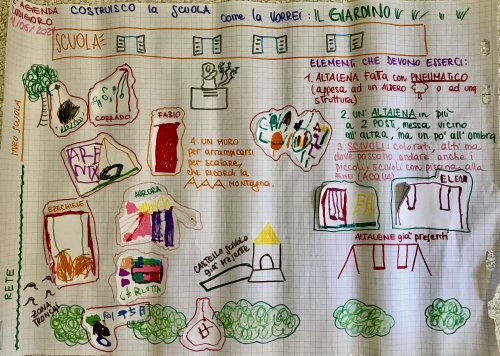 L'AGENDA
CONIGORO
COSTRUISCO la SCUOLA come la VORREI: IL GIARDINO
SCUOLA
MURO SCUOLA
RETE
CORRADO
FABIO
ELEMENTI CHE DEVONO ESSERCI:
1. ALTALENA FATTA con PNEUMATICO
(appesa ad un ALBERO o ad una
struttura)
2. UN' ALTALENA in più
a 2 POSTI, messa vicino
all'altra, ma un po' all'ombra
3. SCIVOLI: colorati, alti ma
dove possono andare anche i
piccoli, scivoli con piscina alla
fine (ACQUA)
4. UN MURO
per arrampicarsi
per scalare,
che ricordi la
MONTAGNA.
EZECHIELE
AURORA
CARLOTTA
ELENA
CASTELLO SCIVOLO
già presente
ALTALENE già presenti
ZONA
TRONCHI